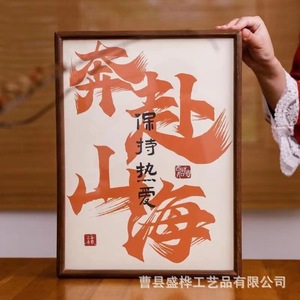 奔赴
山海
保持热爱
曹县盛桦工艺品有限公司